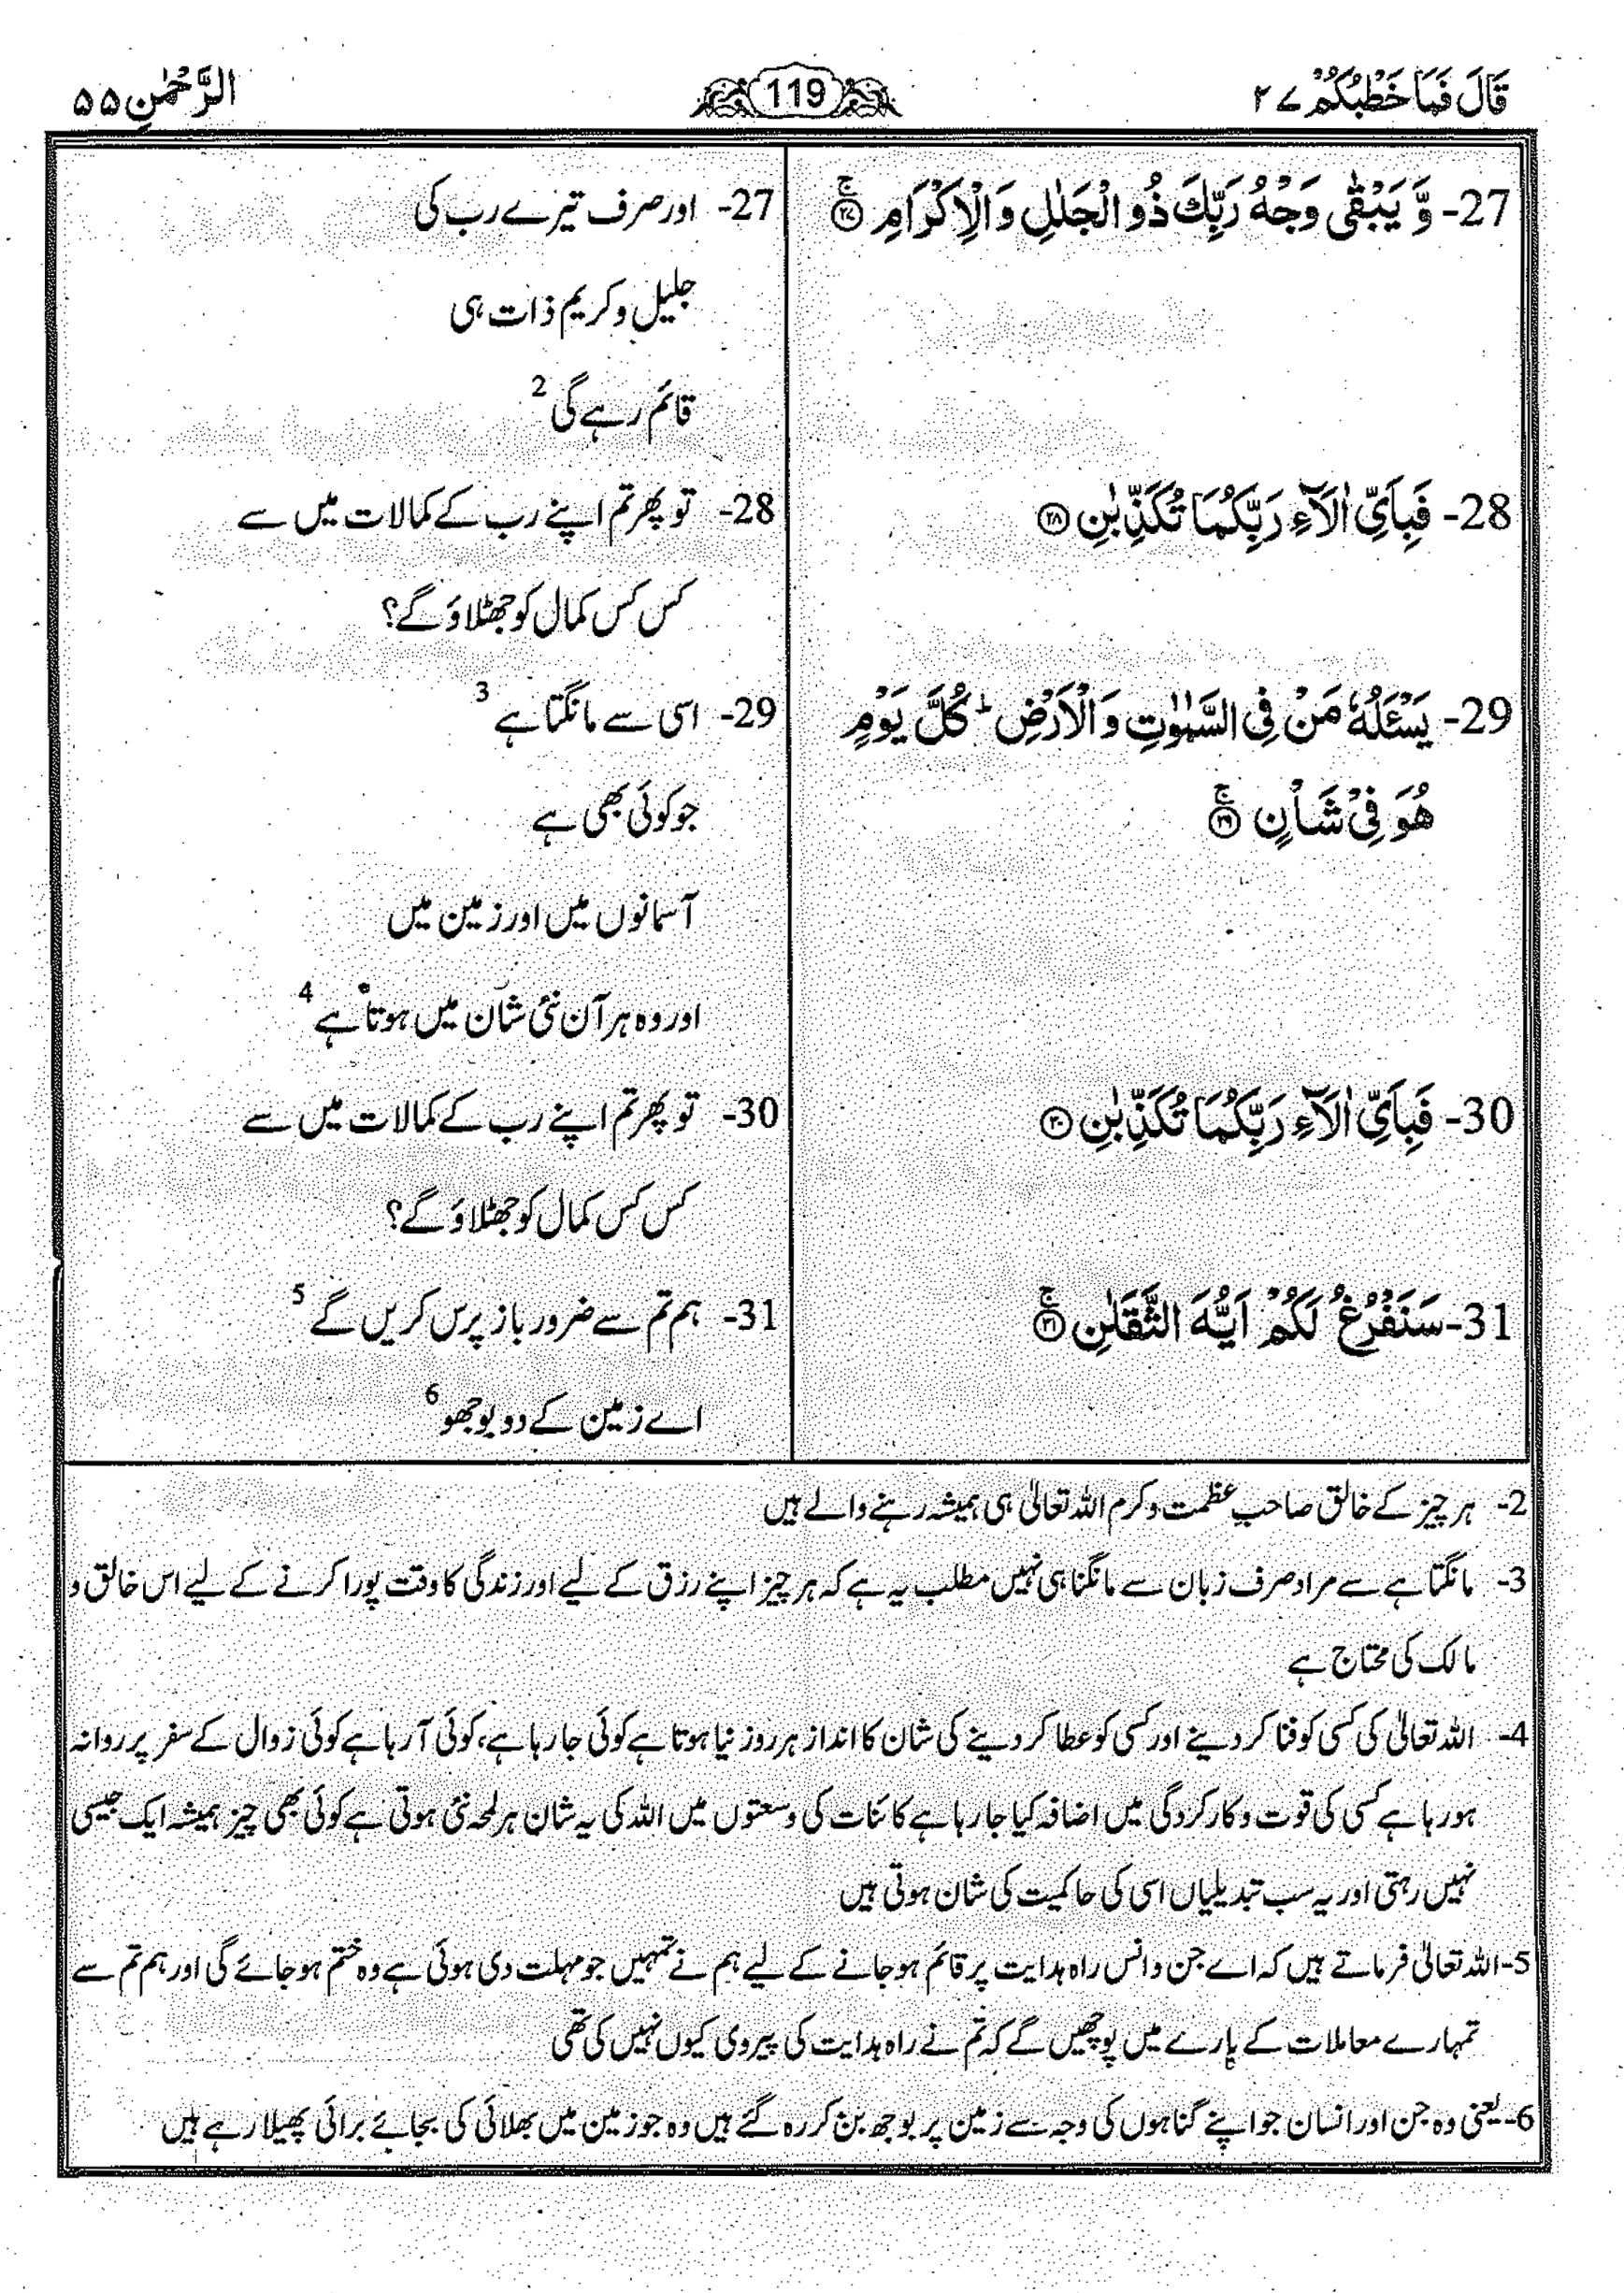 قَالَ فَمَا خَطْبُكُمْ ۲۷
119
الرَّحْمٰنِ ۵۵
27- وَّ يَبْقٰى وَجْهُ رَبِّكَ ذُو الْجَلٰلِ وَ الْاِكْرَامِ ۚ۝۲۷
28- فَبِاَيِّ اٰلَآءِ رَبِّكُمَا تُكَذِّبٰنِ ۝۲۸
29- يَسْـَٔلُهٗ مَنْ فِی السَّمٰوٰتِ وَ الْاَرْضِ ؕ كُلَّ يَوْمٍ
هُوَ فِیْ شَاْنٍ ۚ۝۲۹
30- فَبِاَيِّ اٰلَآءِ رَبِّكُمَا تُكَذِّبٰنِ ۝۳۰
31- سَنَفْرُغُ لَكُمْ اَيُّهَ الثَّقَلٰنِ ۚ۝۳۱
27- اور صرف تیرے رب کی
جلیل و کریم ذات ہی
قائم رہے گی 2
28- تو پھر تم اپنے رب کے کمالات میں سے
کس کس کمال کو جھٹلاؤ گے؟
29- اسی سے مانگتا ہے 3
جو کوئی بھی ہے
آسمانوں میں اور زمین میں
اور وہ ہر آن نئی شان میں ہوتا ہے 4
30- تو پھر تم اپنے رب کے کمالات میں سے
کس کس کمال کو جھٹلاؤ گے؟
31- ہم تم سے ضرور باز پرس کریں گے 5
اے زمین کے دو بوجھو 6
2- ہر چیز کے خالق صاحبِ عظمت و کرم اللہ تعالیٰ ہی ہمیشہ رہنے والے ہیں
3- مانگتا ہے سے مراد صرف زبان سے مانگنا ہی نہیں مطلب یہ ہے کہ ہر چیز اپنے رزق کے لیے اور زندگی کا وقت پورا کرنے کے لیے اس خالق و
مالک کی محتاج ہے
4- اللہ تعالیٰ کی کسی کو فنا کر دینے اور کسی کو عطا کر دینے کی شان کا انداز ہر روز نیا ہوتا ہے کوئی جا رہا ہے، کوئی آ رہا ہے کوئی زوال کے سفر پر روانہ
ہو رہا ہے کسی کی قوت و کارکردگی میں اضافہ کیا جا رہا ہے کائنات کی وسعتوں میں اللہ کی یہ شان ہر لمحہ نئی ہوتی ہے کوئی بھی چیز ہمیشہ ایک جیسی
نہیں رہتی اور یہ سب تبدیلیاں اسی کی حاکمیت کی شان ہوتی ہیں
5- اللہ تعالیٰ فرماتے ہیں کہ اے جن و انس راہ ہدایت پر قائم ہو جانے کے لیے ہم نے تمہیں جو مہلت دی ہوئی ہے وہ ختم ہو جائے گی اور ہم تم سے
تمہارے معاملات کے بارے میں پوچھیں گے کہ تم نے راہ ہدایت کی پیروی کیوں نہیں کی تھی
6- یعنی وہ جن اور انسان جو اپنے گناہوں کی وجہ سے زمین پر بوجھ بن کر رہ گئے ہیں وہ جو زمین میں بھلائی کی بجائے برائی پھیلا رہے ہیں